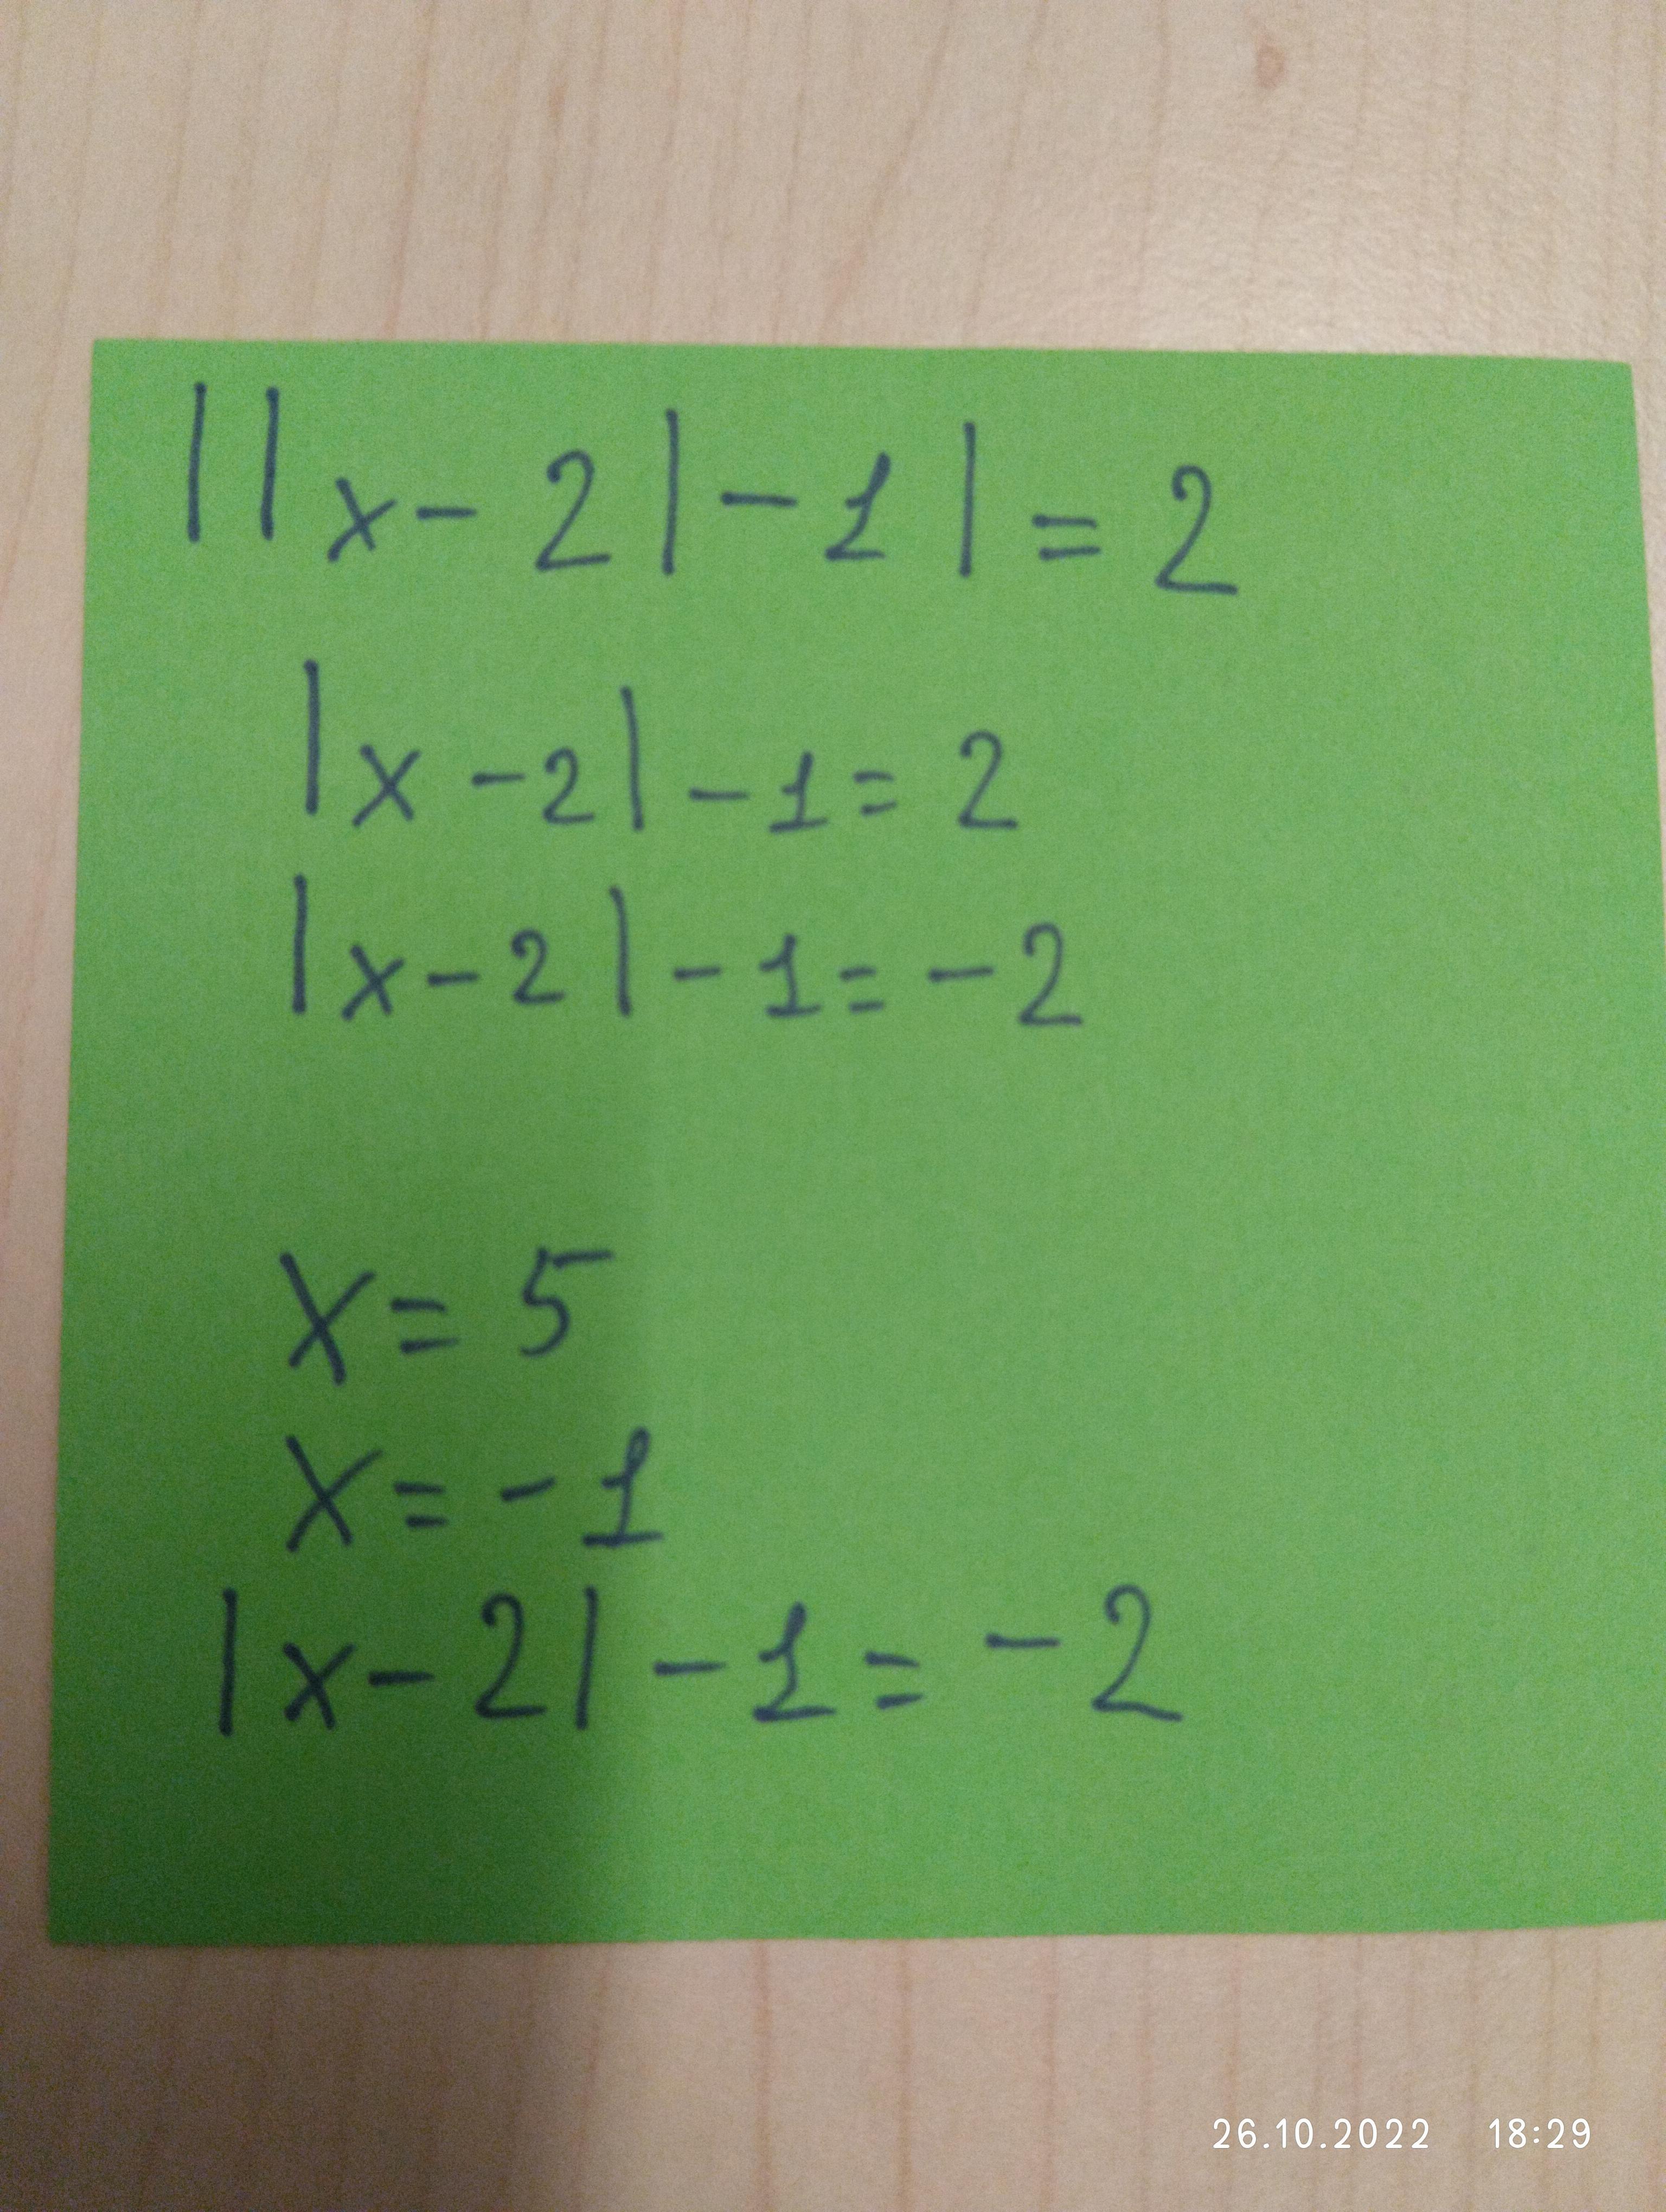 ||x-2|-1|=2
|x-2|-1=2
|x-2|-1=-2
x=5
x=-1
|x-2|-1=-2
26.10.2022 18:29